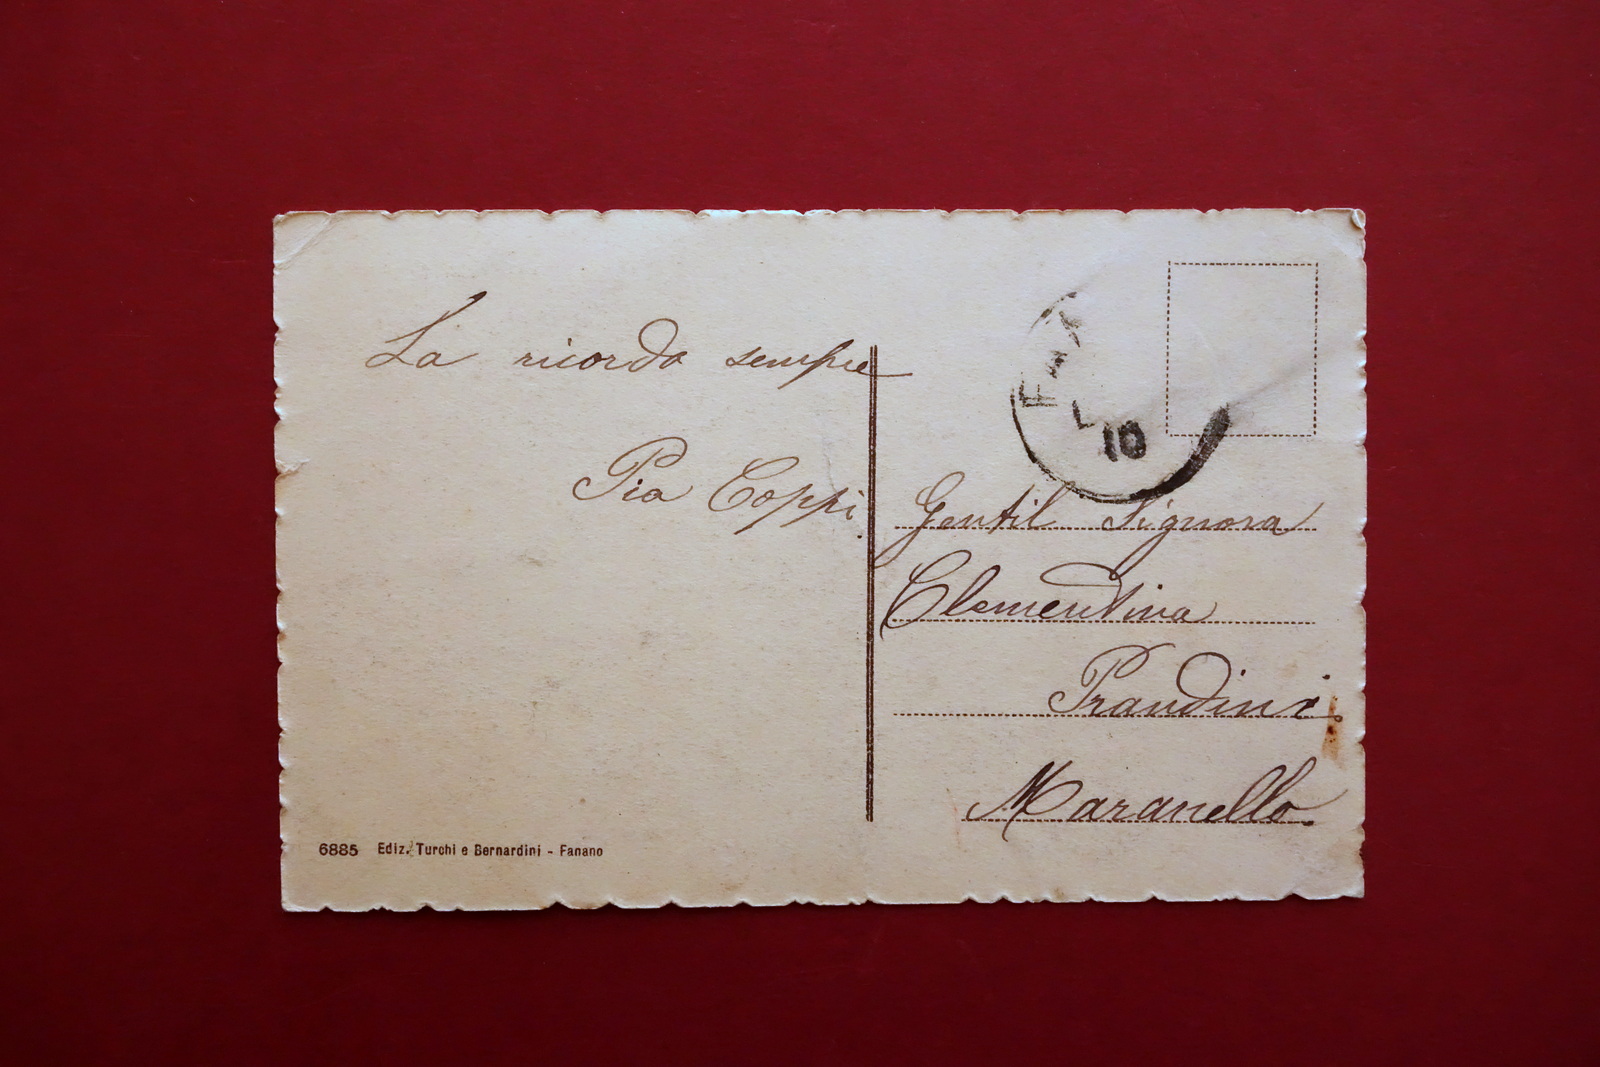 La ricordo sempre
Pia Coppi.
10
Gentil Signora
Clementina
Prandini.
Maranello.
6885 Ediz. Turchi e Bernardini - Fanano